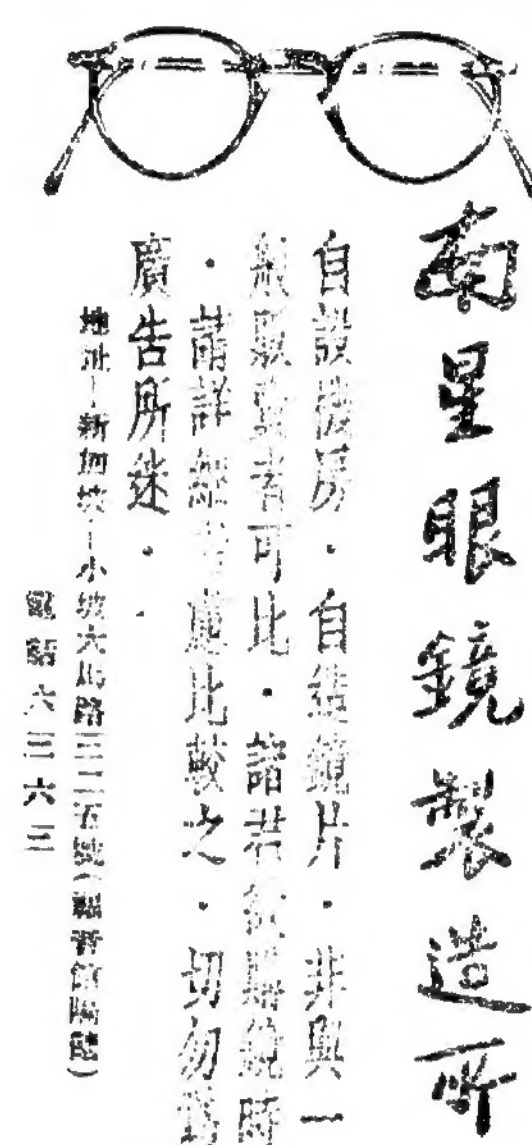 南星眼鏡製造所
自設機房・自造鏡片・非與一
般販賣者可比・諸君欲購鏡時
・請詳細考慮比較之・切勿爲
廣告所迷・
地址—新加坡—小坡大馬路三二五號(隔鄰)
電話六三六三